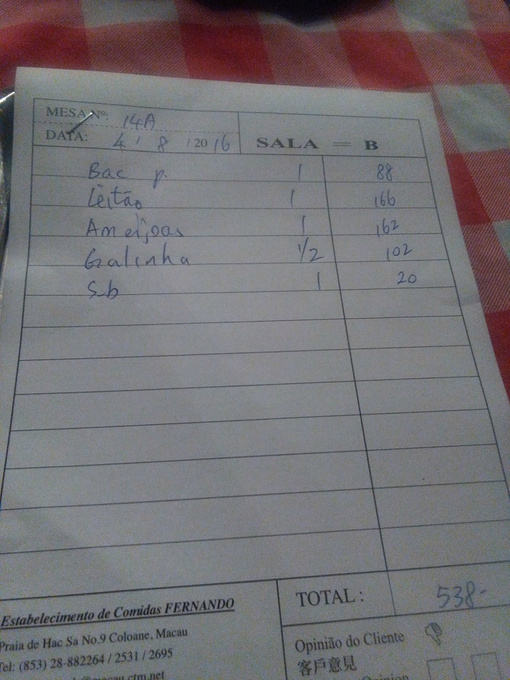 MESA Nº: 14A
DATA: 4 / 8 / 20 16
SALA = B
Bac p. 1 88
Leitão 1 166
Ameijoas 1 162
Galinha 1/2 102
Sb 1 20
TOTAL: 538-
Estabelecimento de Comidas FERNANDO
Praia de Hac Sa No.9 Coloane, Macau
Tel: (853) 28-882264 / 2531 / 2695
macau.ctm.net
Opinião do Cliente
客戶意見
Opinion